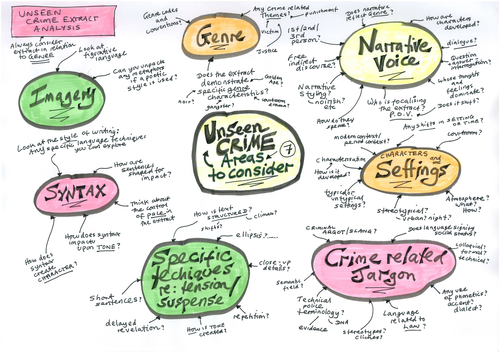 UNSEEN
CRIME EXTRACT
ANALYSIS
Always consider
extract in relation
to GENRE
Look at
figurative
language
Can you unpack
any metaphors
if a poetic
style is used?
Imagery
Genre codes
and conventions?
Any crime related
themes?
Punishment
victim
Justice
Genre
Does the extract
demonstrate
specific genre
characteristics?
Golden
Age?
noir?
gangster?
courtroom
drama?
Does narrative
reflect genre?
1st/2nd/
3rd
person?
Free indirect
discourse?
Narrative
styling?
noirish?
etc
How do they
speak?
Narrative
Voice
How are
characters
developed?
dialogue?
Question
answer
interrogation?
whose thoughts
and feelings
dominate?
Does it shift?
Who is focalising
the extract?
P.O.V.
Unseen
CRIME
Areas
to consider
7
Look at the style of writing:
Any specific language techniques
you can explore
How are
sentences
shaped for
impact?
SYNTAX
Think about
the control
of pace in
the extract
How does
syntax
create
CHARACTER?
How does syntax
impact
upon TONE?
modern context/
period context?
Any shifts in SETTING
or TIME?
courtroom?
characterisation
How is it
developed?
typical or
untypical
settings?
stereotypical?
urban? night?
CHARACTERS
and
Settings
Atmosphere?
what?
How?
How is text
STRUCTURED?
shifts?
climax?
ellipsis...
close-up
details?
Specific
techniques
re: tension/
suspense
Short
sentences!
delayed
revelation?
How is TONE
created?
repetition?
CRIMINAL
ARGOT/SLANG?
Does language signify
social status?
colloquial?
formal?
technical?
Crime related
Jargon
semantic
field?
Technical
police
terminology?
evidence
DNA
stereotypes?
cliches?
Language
related to
LAW?
Any use of
phonetics?
accent?
dialect?